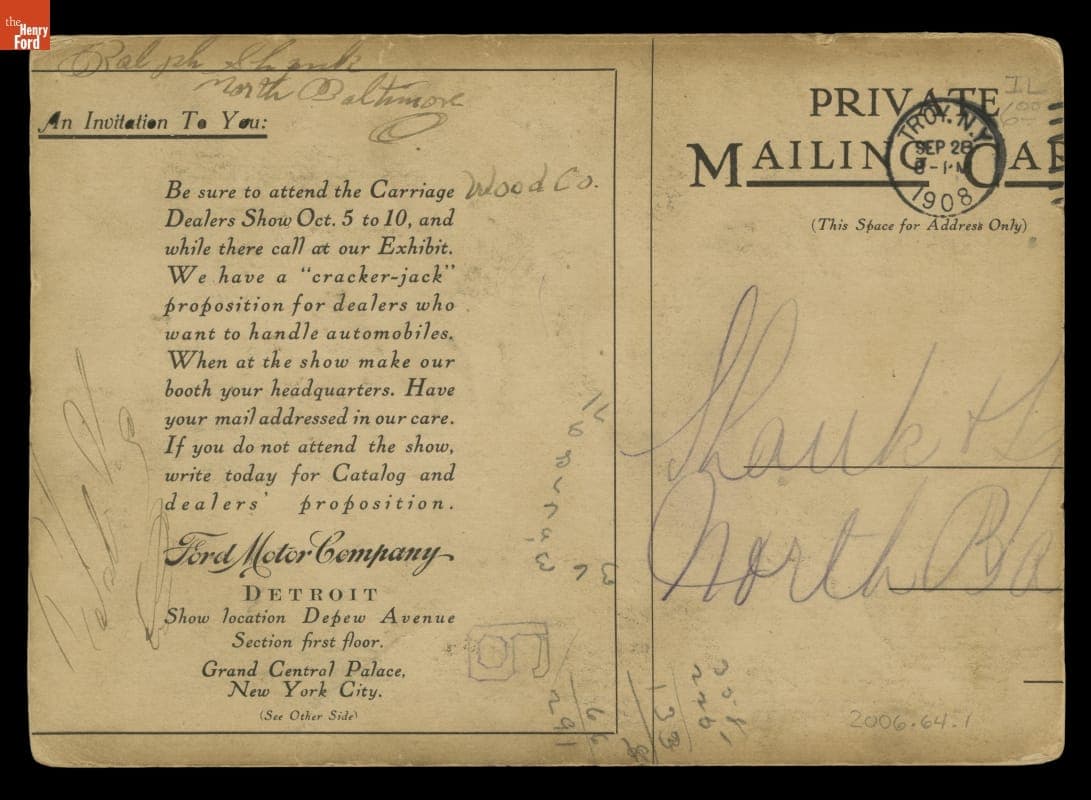 the
Henry
Ford
Ralph Shank
North Baltimore
O
Wood Co.
An Invitation To You:
Be sure to attend the Carriage
Dealers Show Oct. 5 to 10, and
while there call at our Exhibit.
We have a "cracker-jack"
proposition for dealers who
want to handle automobiles.
When at the show make our
booth your headquarters. Have
your mail addressed in our care.
If you do not attend the show,
write today for Catalog and
dealers' proposition.
Ford Motor Company
DETROIT
Show location Depew Avenue
Section first floor.
Grand Central Palace,
New York City.
(See Other Side)
PRIVATE
MAILING CAR
(This Space for Address Only)
TROY, N.Y.
SEP 28
1908
Shank &
North Ba
133
291
2006.64.1